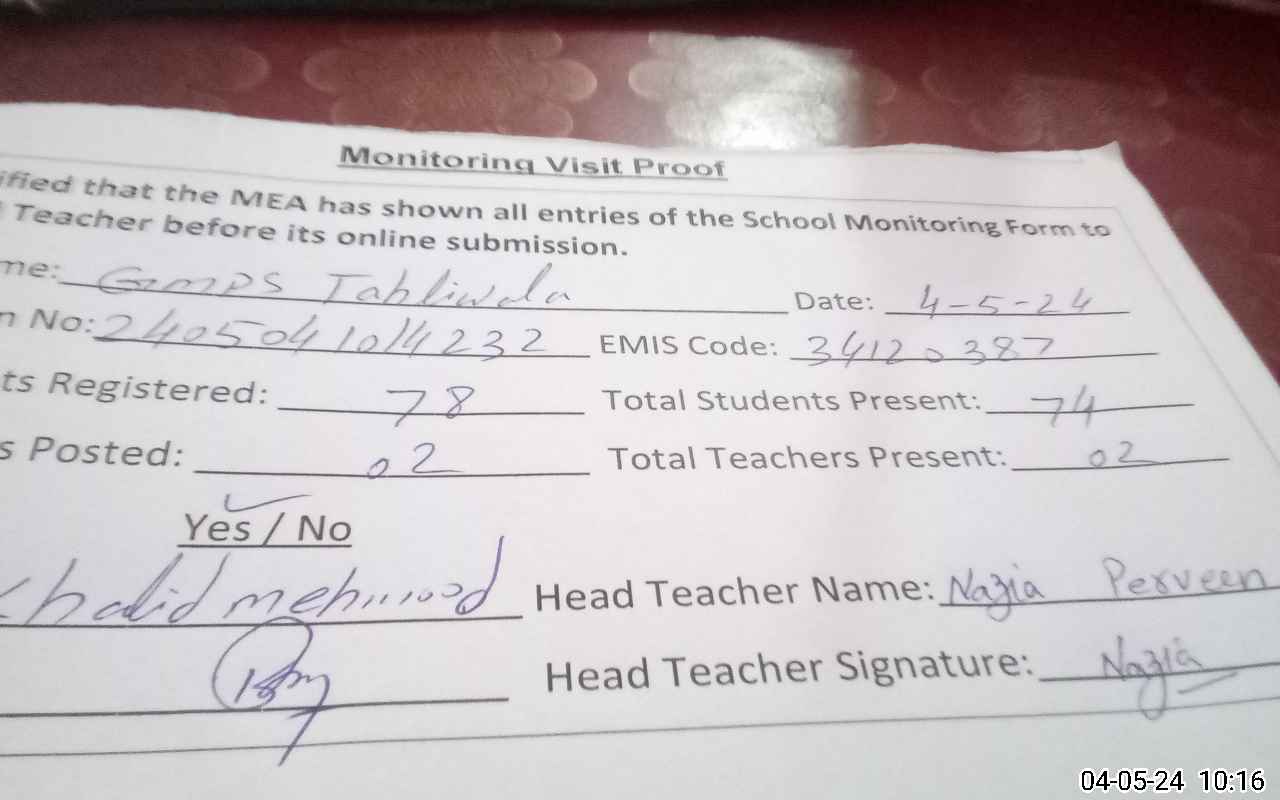 Monitoring Visit Proof
ified that the MEA has shown all entries of the School Monitoring Form to
Teacher before its online submission.
me: GMPS Tabliwala Date: 4-5-24
n No: 2405041014232 EMIS Code: 34120387
ts Registered: 78 Total Students Present: 74
s Posted: 02 Total Teachers Present: 02
Yes / No
Khalid mehmood Head Teacher Name: Nazia Perveen
Head Teacher Signature: Nazia
04-05-24 10:16